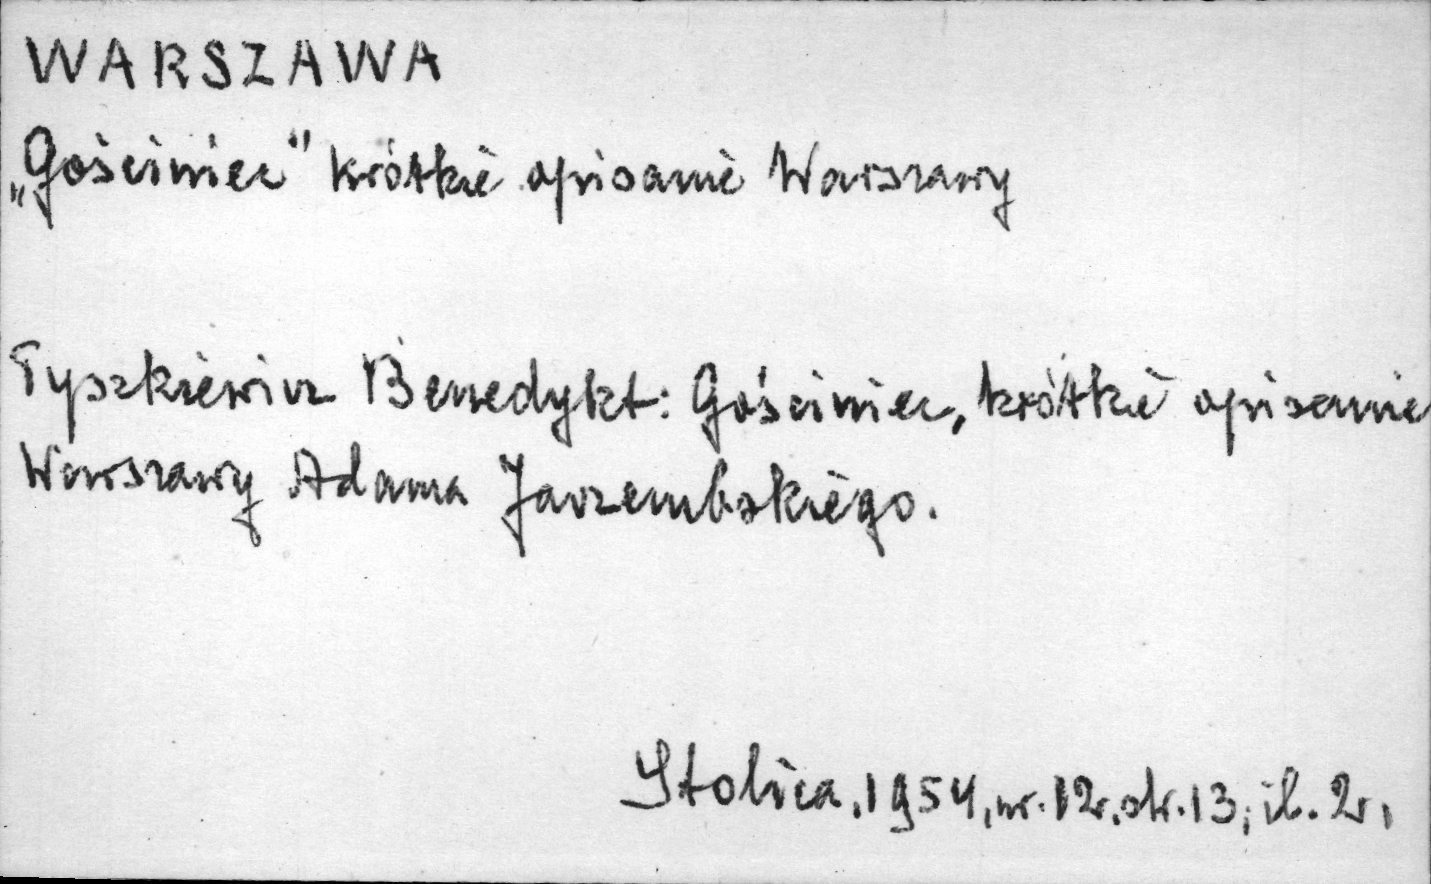 WARSZAWA
„Gościniec" krótkie opisanie Warszawy
Tyszkiewicz Benedykt: Gościniec, krótkie opisanie
Warszawy Adama Jarzembskiego.
Stolica, 1954, nr. 12, str. 13, il. 2,